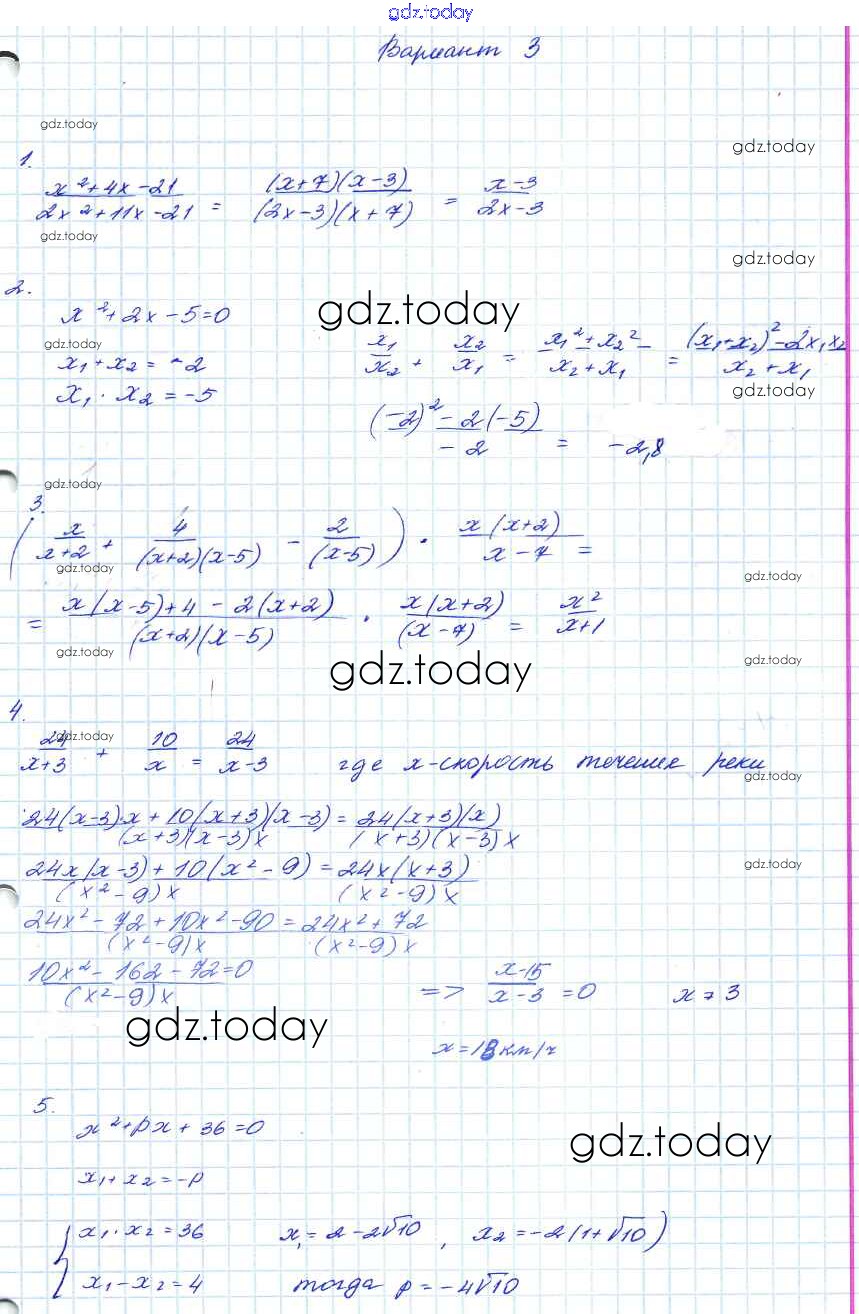 gdz.today
Вариант 3
gdz.today
gdz.today
1.
x²+4x-21 / 2x²+11x-21 = (x+7)(x-3) / (2x-3)(x+7) = x-3 / 2x-3
gdz.today
gdz.today
2.
x²+2x-5=0
gdz.today
gdz.today
x₁+x₂=-2
x₁·x₂=-5
x₁/x₂ + x₂/x₁ = x₁²+x₂² / x₂+x₁ = (x₁+x₂)²-2x₁x₂ / x₂+x₁
gdz.today
(-2)²-2(-5) / -2 = -2,8
gdz.today
3.
(x/x+2 + 4/(x+2)(x-5) - 2/(x-5)) · x(x+2)/x-7 =
gdz.today
gdz.today
= x(x-5)+4-2(x+2) / (x+2)(x-5) · x(x+2)/(x-7) = x²/x+1
gdz.today
gdz.today
gdz.today
4.
gdz.today
24/x+3 + 10/x = 24/x-3 где x-скорость течения реки
gdz.today
24(x-3)·x+10(x+3)(x-3) / (x+3)(x-3)x = 24(x+3)(x) / (x+3)(x-3)x
24x(x-3)+10(x²-9) / (x²-9)x = 24x(x+3) / (x²-9)x
gdz.today
24x²-72+10x²-90 / (x²-9)x = 24x²+72 / (x²-9)x
10x²-162-72=0 / (x²-9)x => x-15/x-3 =0 x≠3
gdz.today
x=18км/ч
5.
x²+px+36=0
gdz.today
x₁+x₂=-p
{x₁·x₂=36 x₁=2-2√10, x₂=-2(1+√10)
x₁-x₂=4 тогда p=-4√10